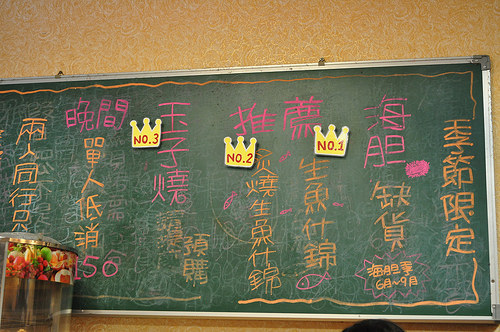 季節限定
海胆
缺貨
海胆季
6月~9月
推薦
NO.1
生魚什錦
NO.2
炙燒生魚什錦
NO.3
玉子燒
預購
晚間
單人低消
150
兩人同行只